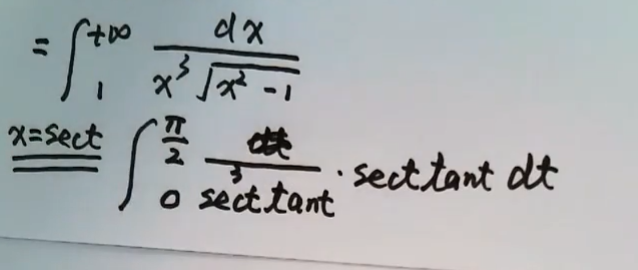 = ∫₁^{+∞} dx / (x³ √(x² - 1))
x=sect ∫₀^{π/2} 1 / (sec³t tant) · sect tant dt